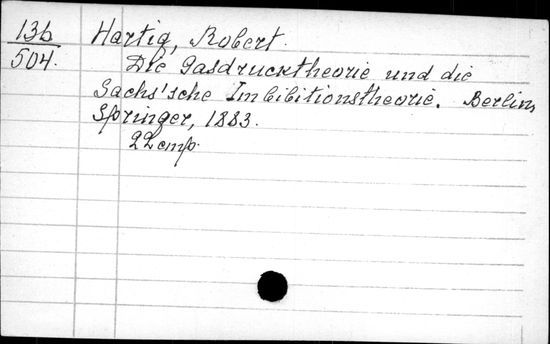 13b Hartig, Robert.
504. Die Gasdrucktheorie und die
Sachs'sche Imbibitionstheorie. Berlin,
Springer, 1883.
22 cmp.